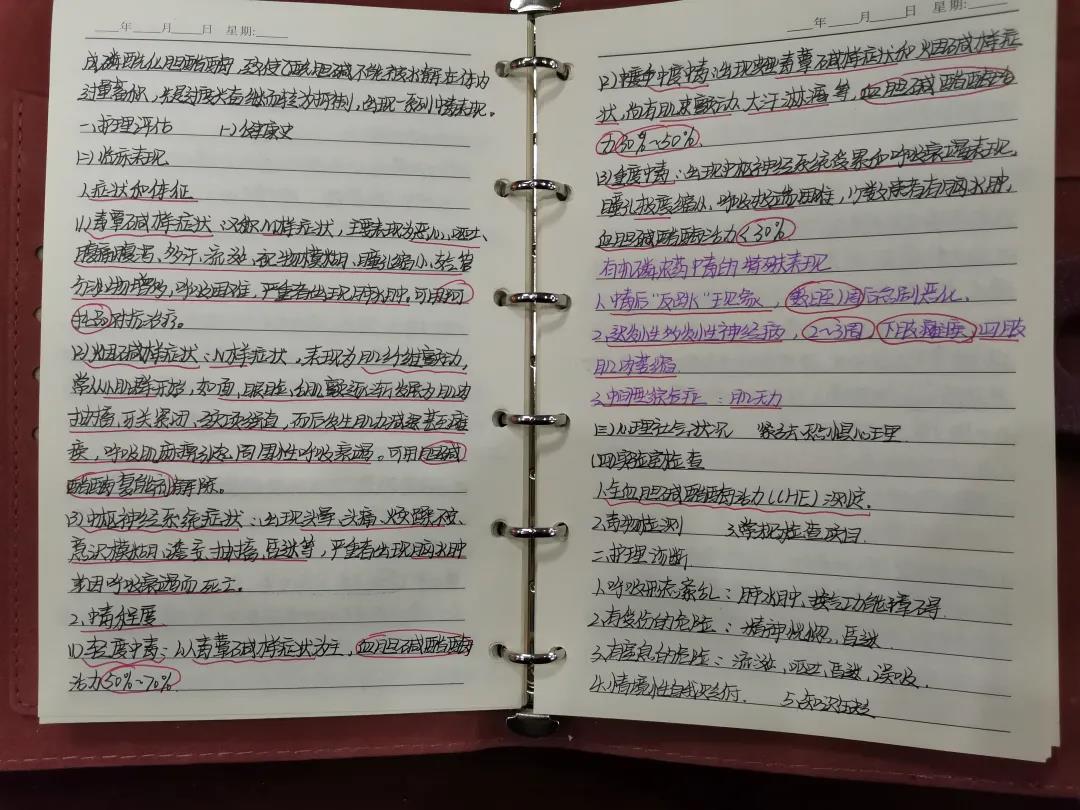 年 月 日 星期:
成磷酰化胆碱酯酶，致使乙酰胆碱不能被水解在体内
过量蓄积，先是过度兴奋继而转为抑制，出现一系列中毒表现。
一、护理评估 (一)健康史
(二)临床表现
1.症状和体征
(1)毒蕈碱样症状：又称M样症状，主要表现为恶心、呕吐、
腹痛腹泻、多汗、流涎、视物模糊、瞳孔缩小、支气管
分泌物增多，呼吸困难，严重者出现肺水肿。可用阿
托品对症治疗。
(2)烟碱样症状：N样症状，表现为肌纤维颤动，
常从小肌群开始，如面、眼睑、
抽搐，牙关紧闭，颈项强直，而后发生肌力减退甚至瘫
痪，呼吸肌麻痹引起周围性呼吸衰竭。可用胆碱
酯酶复能剂解除。
(3)中枢神经系统症状：出现头晕、头痛、烦躁不安、
意识模糊、谵妄、抽搐、昏迷等，严重者出现脑水肿
并因呼吸衰竭而死亡。
2.中毒程度
(1)轻度中毒：以毒蕈碱样症状为主，血胆碱酯酶
活力50%~70%
年 月 日 星期:
(2)中度中毒：出现典型毒蕈碱样症状和烟碱样症
状，尚有肌束颤动、大汗淋漓等，血胆碱酯酶活
力30%~50%
(3)重度中毒：出现中枢神经系统受累和呼吸衰竭表现，
瞳孔极度缩小，呼吸极度困难，少数患者有脑水肿，
血胆碱酯酶活力<30%
有机磷农药中毒的特殊表现
1.中毒后"反跳"现象，数日至1周后急剧恶化.
2.迟发性多发性神经病，2~3周 下肢瘫痪、四肢
肌肉萎缩
3.中间型综合征：肌无力
(三)心理社会状况 紧张、恐惧心理
(四)实验室检查
1.全血胆碱酯酶活力(CHE)测定.
2.毒物检测 3.常规检查项目.
二、护理诊断
1.呼吸形态紊乱：肺水肿，换气功能障碍
2.有受伤的危险：精神恍惚，昏迷
3.有窒息的危险：流涎，呕吐，昏迷，误吸.
4.情境性自我贬低. 5.知识缺乏